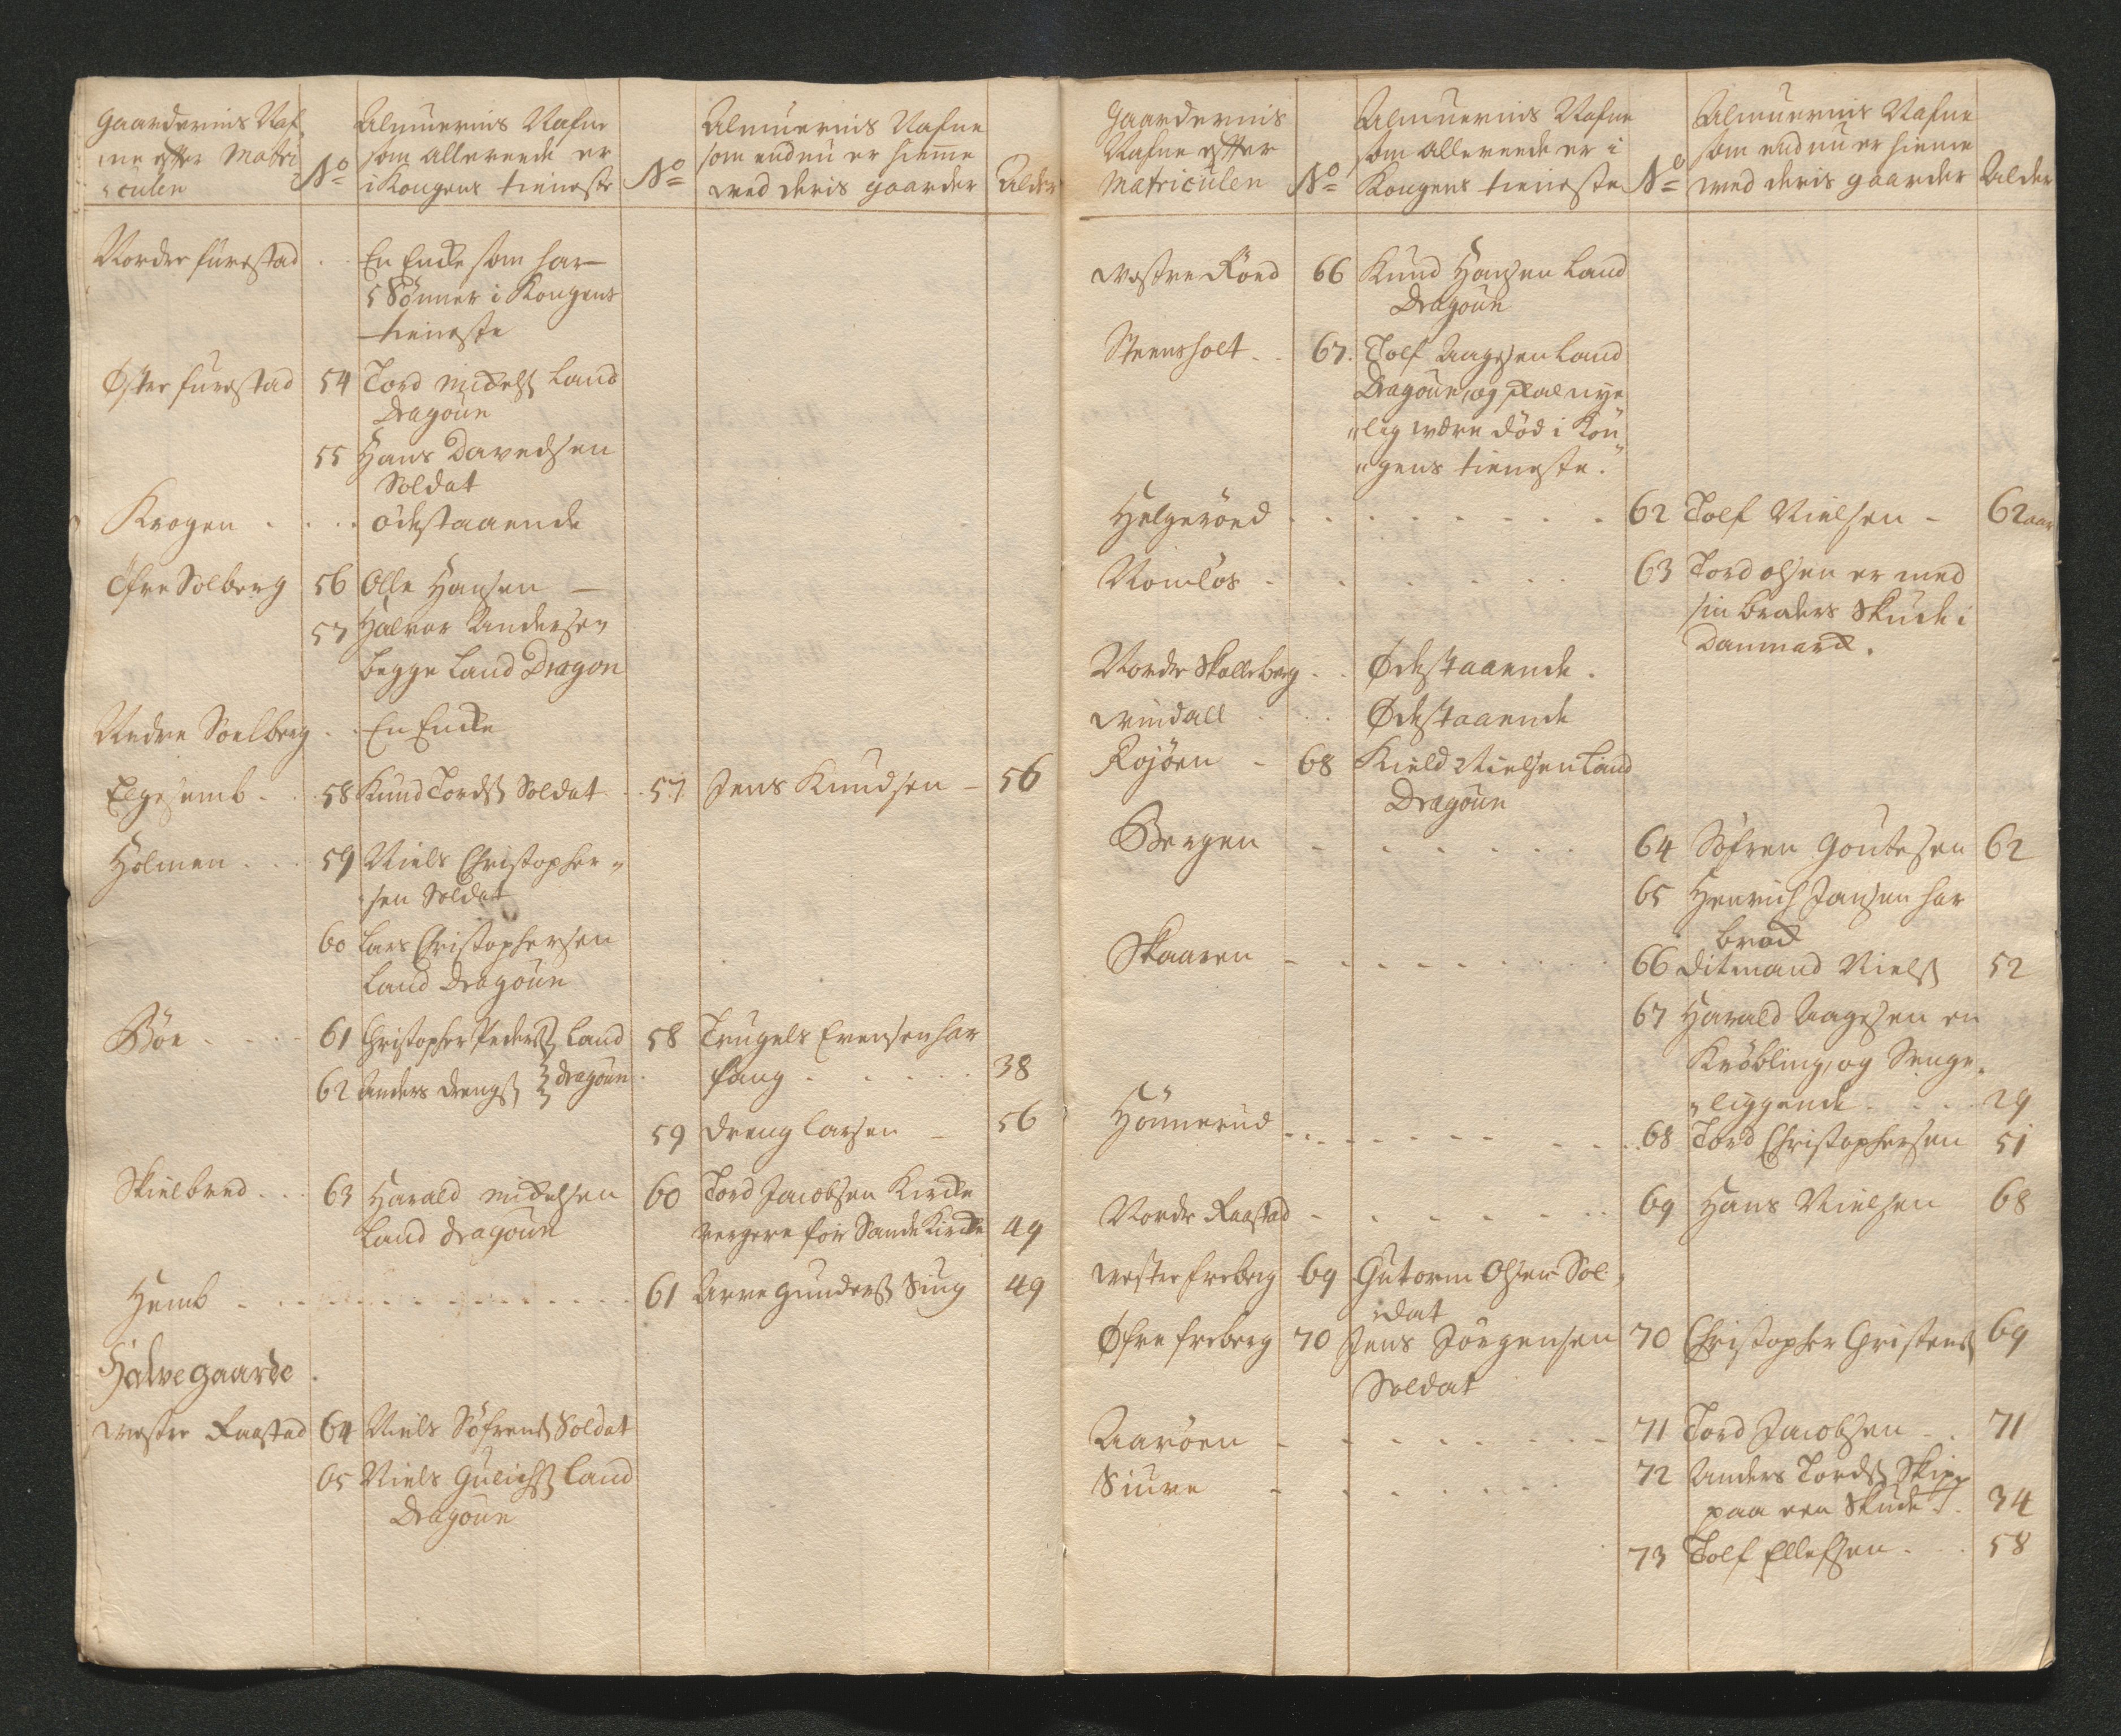 Gaardernis Naf,
ne effter Matri
culen
No
Almuernis Nafne
som allereede er
i Kongens tieneste
No
Almuernis Nafne
som endnu er hieme
ved deris gaarder
Alder
Norder furestad . . En Encke som har
5 Sønner i Kongens
tieneste
Øster furestad 54 Tord Mickels Land
Dragoun
55 Hans Davedsen
Soldat
Krogen . . . . ødestaaende
Øfre Solberg 56 Olle Hansen –
57 Halvor Andersen
begge Land Dragon
Nedre Soelberg . . En Encke
Elgesemb . . 58 Knud Tords Soldat . . 57 Jens Knudsen – 56
Holmen . . . 59 Niels Christopher„
sen Soldat
60 Lars Christophersen
Land Dragoun
Bøe . . . . 61 Christopher Peders Land 58 Trugels Evensen har
62 Anders Drengs dragoun fang . . . . . 38
59 Dreng Larsen – 56
Skielbred . . . 63 Harald Mickelsen 60 Tord Jacobsen Kircke
Land dragoun vergere for Sande Kircke 49
Hemb . . . . . . . . . . . . 61 Arne Gunders Siug 49
Halvegaarde .
Westre Raastad 64 Niels Søfrens Soldat
65 Niels Gulichs Land
Dragoun
Gaardernis
Nafne effter
Matriculen
No
Almuernis Nafne
som allereede er i
Kongens tieneste
No
Almuernis Nafne
som endnu er hieme
ved deris gaarder
Alder
Westre Røed 66 Knud Hansen Land
Dragoun
Steensholt . . 67. Tolf Aagesen Land
Dragoun, og skal nye
„lig være død i Kon„
„gens tieneste.
Helgerøed . . . . . . . . 62 Tolf Nielsen – 62 aar
Romløs . . . . . . 63 Tord Olsen er med
sin broders Skude i
Danmarck.
Nordre Skalleberg . . Ødestaaende .
Windall . . . Ødestaaende
Røjøen – 68 Kield Nielsen Land
Dragoun
Bergen – . . . . . . 64 Søfren Goutesen 62
65 Henrich Jansen har
brock
Skaaren – . . . . . . . 66 Ditmand Niels 52
67 Harald Aagesen en
Krøbling, og Senge„
„liggende . . . 29
Hønnerud . . . . . . . . 68 Tord Christophersen 51
Nordre Raastad – . . . . . . 69 Hans Nielsen 68
Wester freberg 69 Gutorm Olsen Sol„
„dat
Øfre freberg 70 Jens Jørgensen 70 Christopher Christens 69
Soldat
Aarøen – . . . . . . . 71 Tord Jacobsen . . 71
Siure – . . . . . . 72 Anders Tords Skipp
paa een Skude . 34
73 Tolf Ellefsen . . . 58